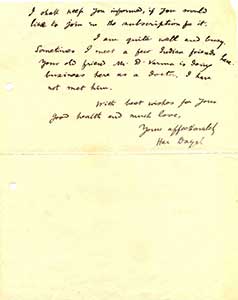 I shall keep you informed, if you would
like to join me the subscription for it.
I am quite well and busy.
Sometimes I meet a few Indian friends here.
Your old friend Mr. D. Varma is doing
business here as a doctor. I have
not met him.
With best wishes for your
good health and much love,
Your affectionately
Har Dayal